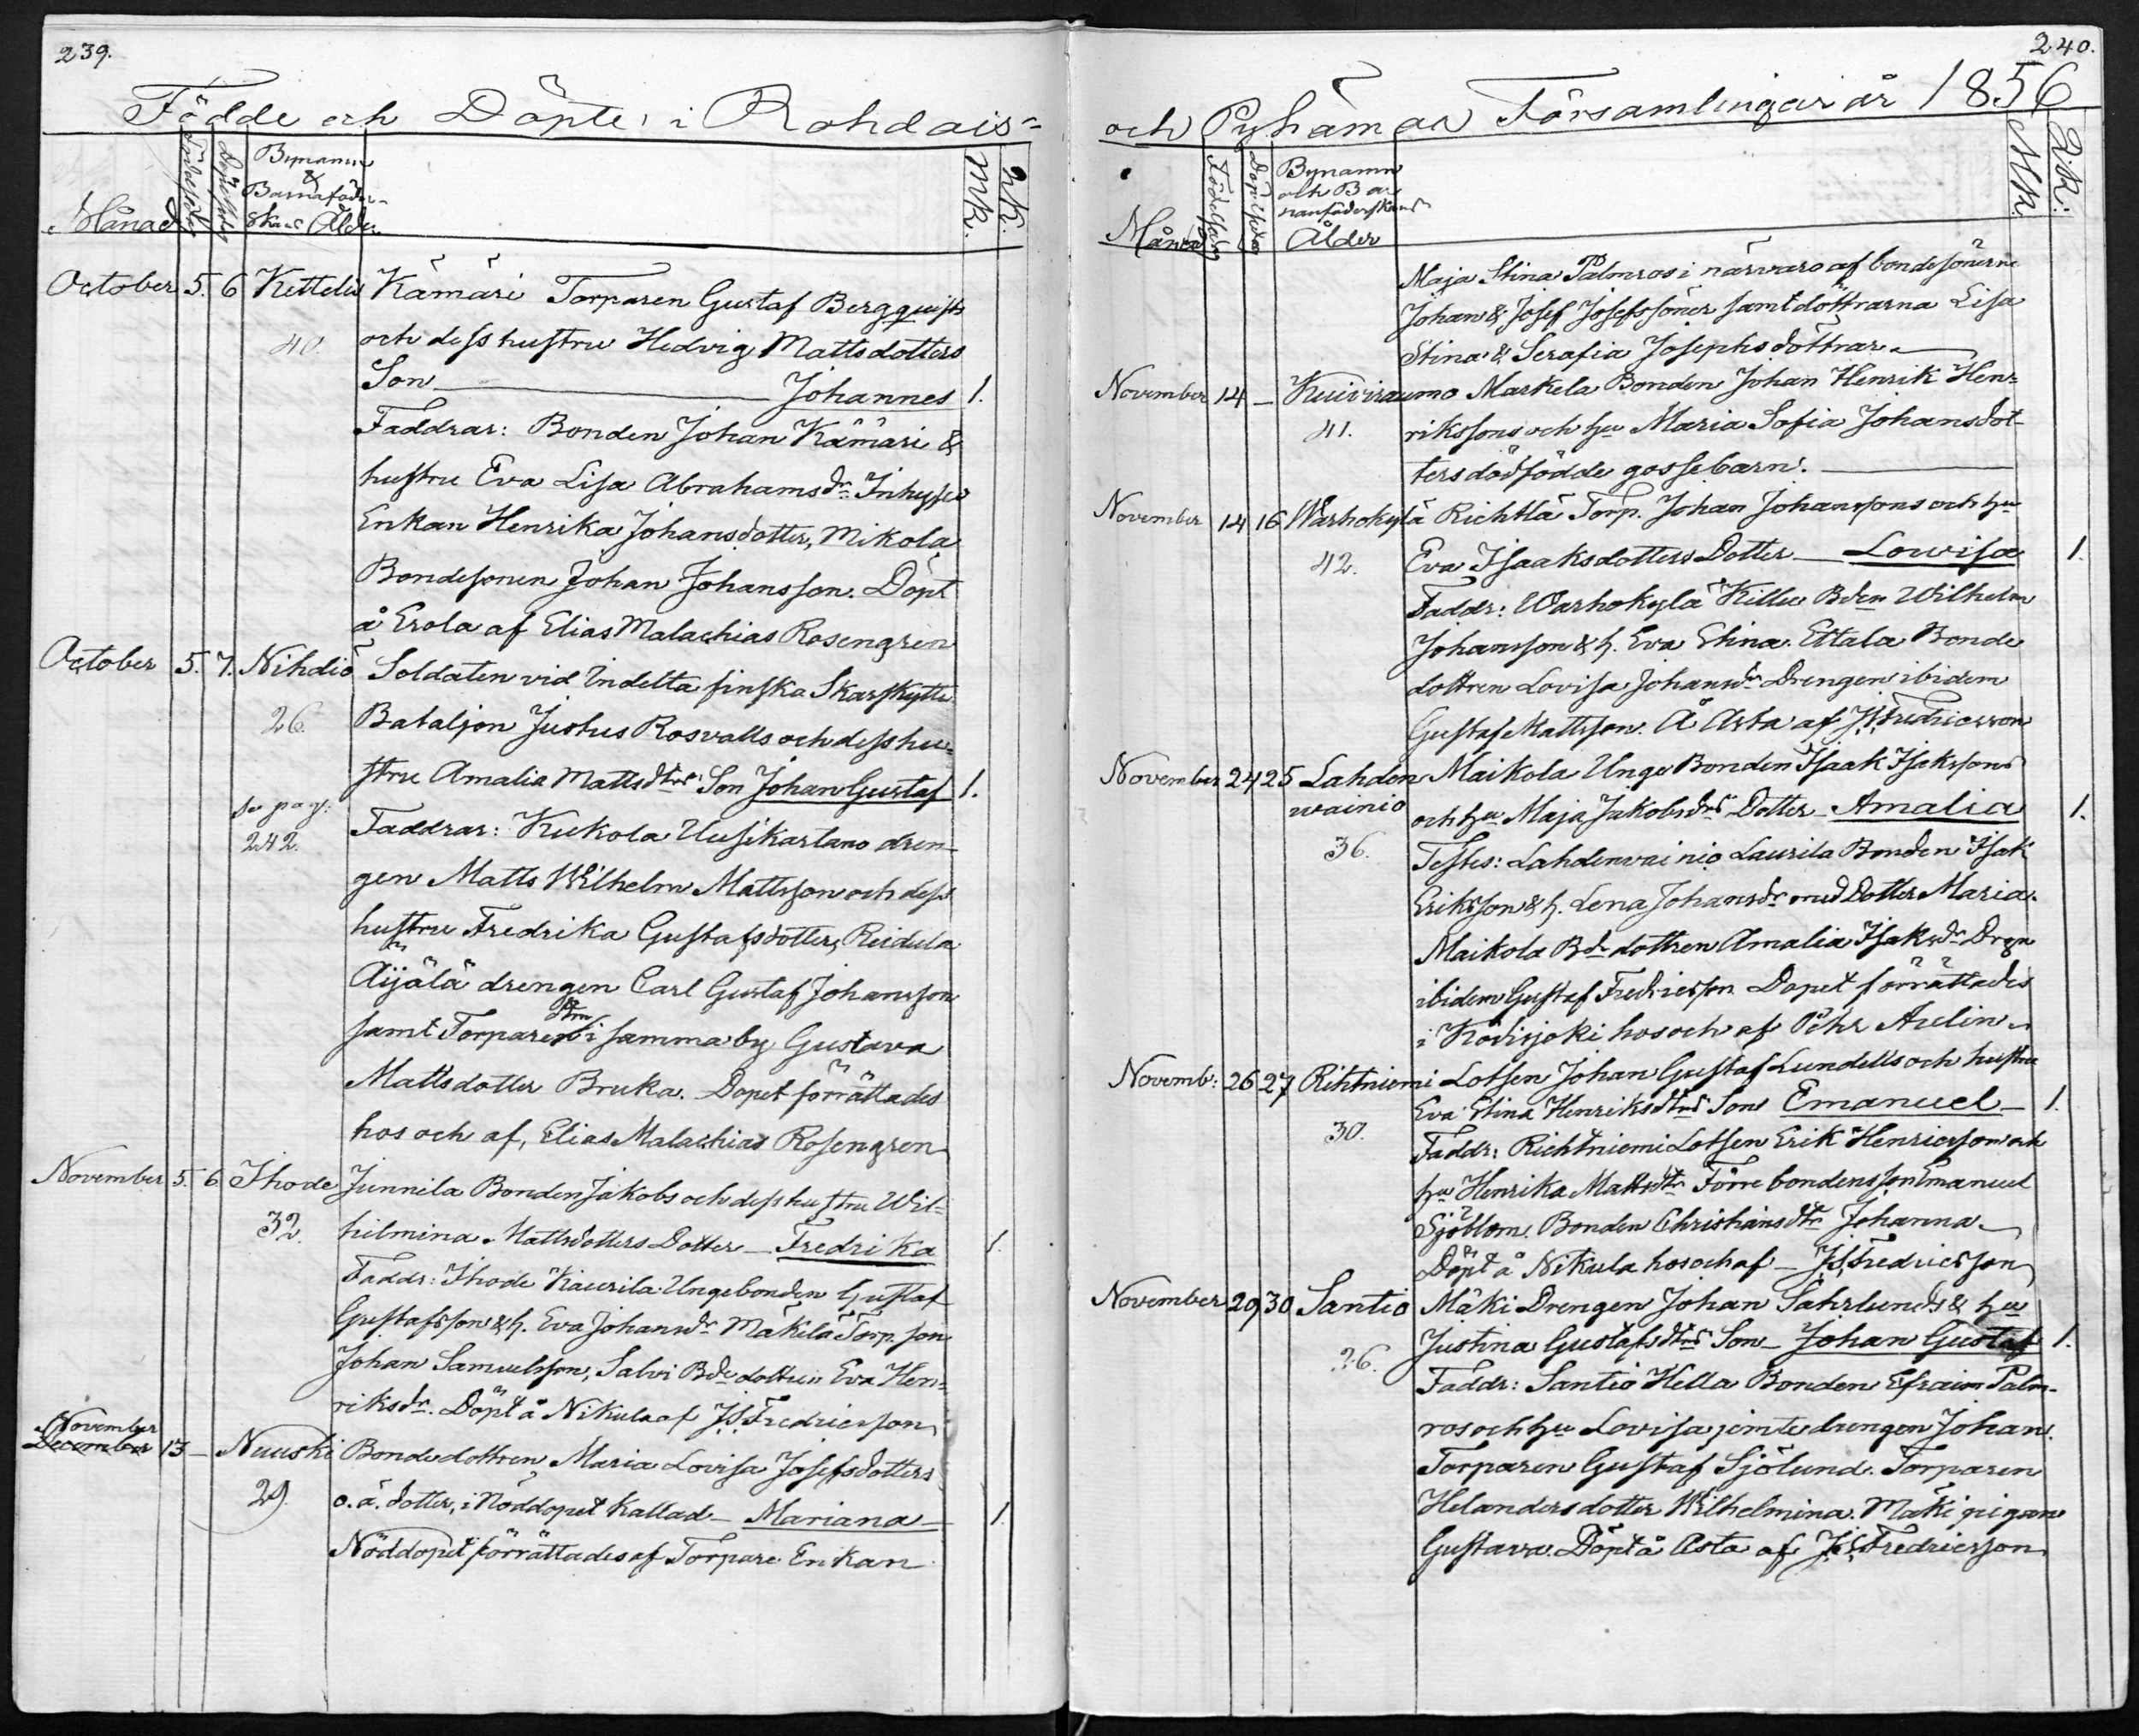 239.
Födde och Döpte i Rohdais=
Månad
Födelsedag
Döpelsedag
Bynamn
&
Barnaföder-
skans Ålder
MK.
QK.
October 5. 6 Kettelis Kämäri Torparen Gustaf Bergquists
40. och dess hustru Hedvig Mattsdotters
Son Johannes 1.
Faddrar: Bonden Johan Kämäri &
hustru Eva Lisa Abrahamsdr Inhyses
Enkan Henrika Johansdotter, Mikola
Bondesonen Johan Johansson. Döpt
å Erola af Elias Malachias Rosengren
October 5. 7. Nihdiö Soldaten vid Indelta finska Skarpskytte
26. Bataljon Justus Rosvalls och dess hu=
stru Amalia Mattsdtrs Son Johan Gustaf 1.
se pag:
242. Faddrar: Kukola Uusikartano dren-
gen Matts Wilhelm Mattsson och dess
hustru Fredrika Gustafsdotter, Reidula
Äijälä drengen Carl Gustaf Johansson
samt Torpare dtrn i samma by Gustava
Mattsdotter Bruka. Dopet förrättades
hos och af, Elias Malachias Rosengren
November 5. 6. Ihode Junnila Bonden Jakobs och dess hustru Wil=
32. hilmina Mattsdotters Dotter - Fredrika 1.
Faddr: Ihode Kaurila Ungebonden Gustaf
Gustafsson & h. Eva Johansdr Mäkilä Torp. son
Johan Samuelsson, Salvi Bde dottren Eva Hen=
riksdr. Döpt å Nikula af J.S. Fredricsson
November
December 13 - Nuuski Bondedottren Maria Lovisa Josefsdotters
29. o.ä. dotter, i Nöddopet kallad - Mariana - 1.
Nöddopet förrättades af Torpare Enkan
240.
och Pyhämaa Församlingar år 1856
Månad
Födelsedag
Döpelsedag
Bynamn
och Bar
nanföderskans
Ålder
MK.
QK:
Maja Stina Palmros i närvaro af bondesönerne
Johan & Josef Josefssöner samt döttrarna Lisa
Stina & Serafia Josephs döttrar.
November 14 - Kuivirauma Markela Bonden Johan Henrik Hen=
41. rikssons och hu Maria Sofia Johansdot-
ters dödfödde gossebarn.
November 14 16 Warhokylä Richtlä Torp. Johan Johanssons och hu
42. Eva Isaaksdotters Dotter - Lowisa 1.
Faddr: Warhokylä Killu Bden Wilhelm
Johansson & h. Eva Stina. Ettala Bonde
dottren Lovisa Johansdr Drengen ibidem
Gustaf Mattsson. Å Asta af J.S. Fredricsson
November 24 25 Lahden Maikola Unge Bonden Isaak Isakssons
wainio och hu Maja Jakobsdrs Dotter - Amalia 1.
36. Testes: Lahdenwainio Laurila Bonden Isak
Eriksson & h. Lena Johansdr med Dotter Maria.
Maikola Bde dottren Amalia Isaksdr Drgn
ibidem Gustaf Fredricsson Dopet förrättades
i Kodisjoki hos och af Pehr Aulin
Novemb: 26 27 Rihtniemi Lotsen Johan Gustaf Lundells och hustru
Eva Stina Henriksdtrs Son Emanuel - 1.
30. Faddr: Richtniemi Lotsen Erik Henricsson och
hu Henrika Mattsdtr Förre bondens son Emanuel
Sjöblom. Bonden Christians dtr Johanna
Döpt å Nikula hos och af - J.S. Fredricsson
November 29 30 Santio Mäki Drengen Johan Sahrlunds & hu
26. Justina Gustafsdtrs Son - Johan Gustaf 1.
Faddr: Santio Hella Bonden Efraim Palm-
ros och hu Lovisa, jemte drengen Johan.
Torparen Gustaf Sjölund. Torparen
Helanders dotter Wilhelmina. Mäki pigan
Gustava. Döpt å Asta af J.S. Fredricsson